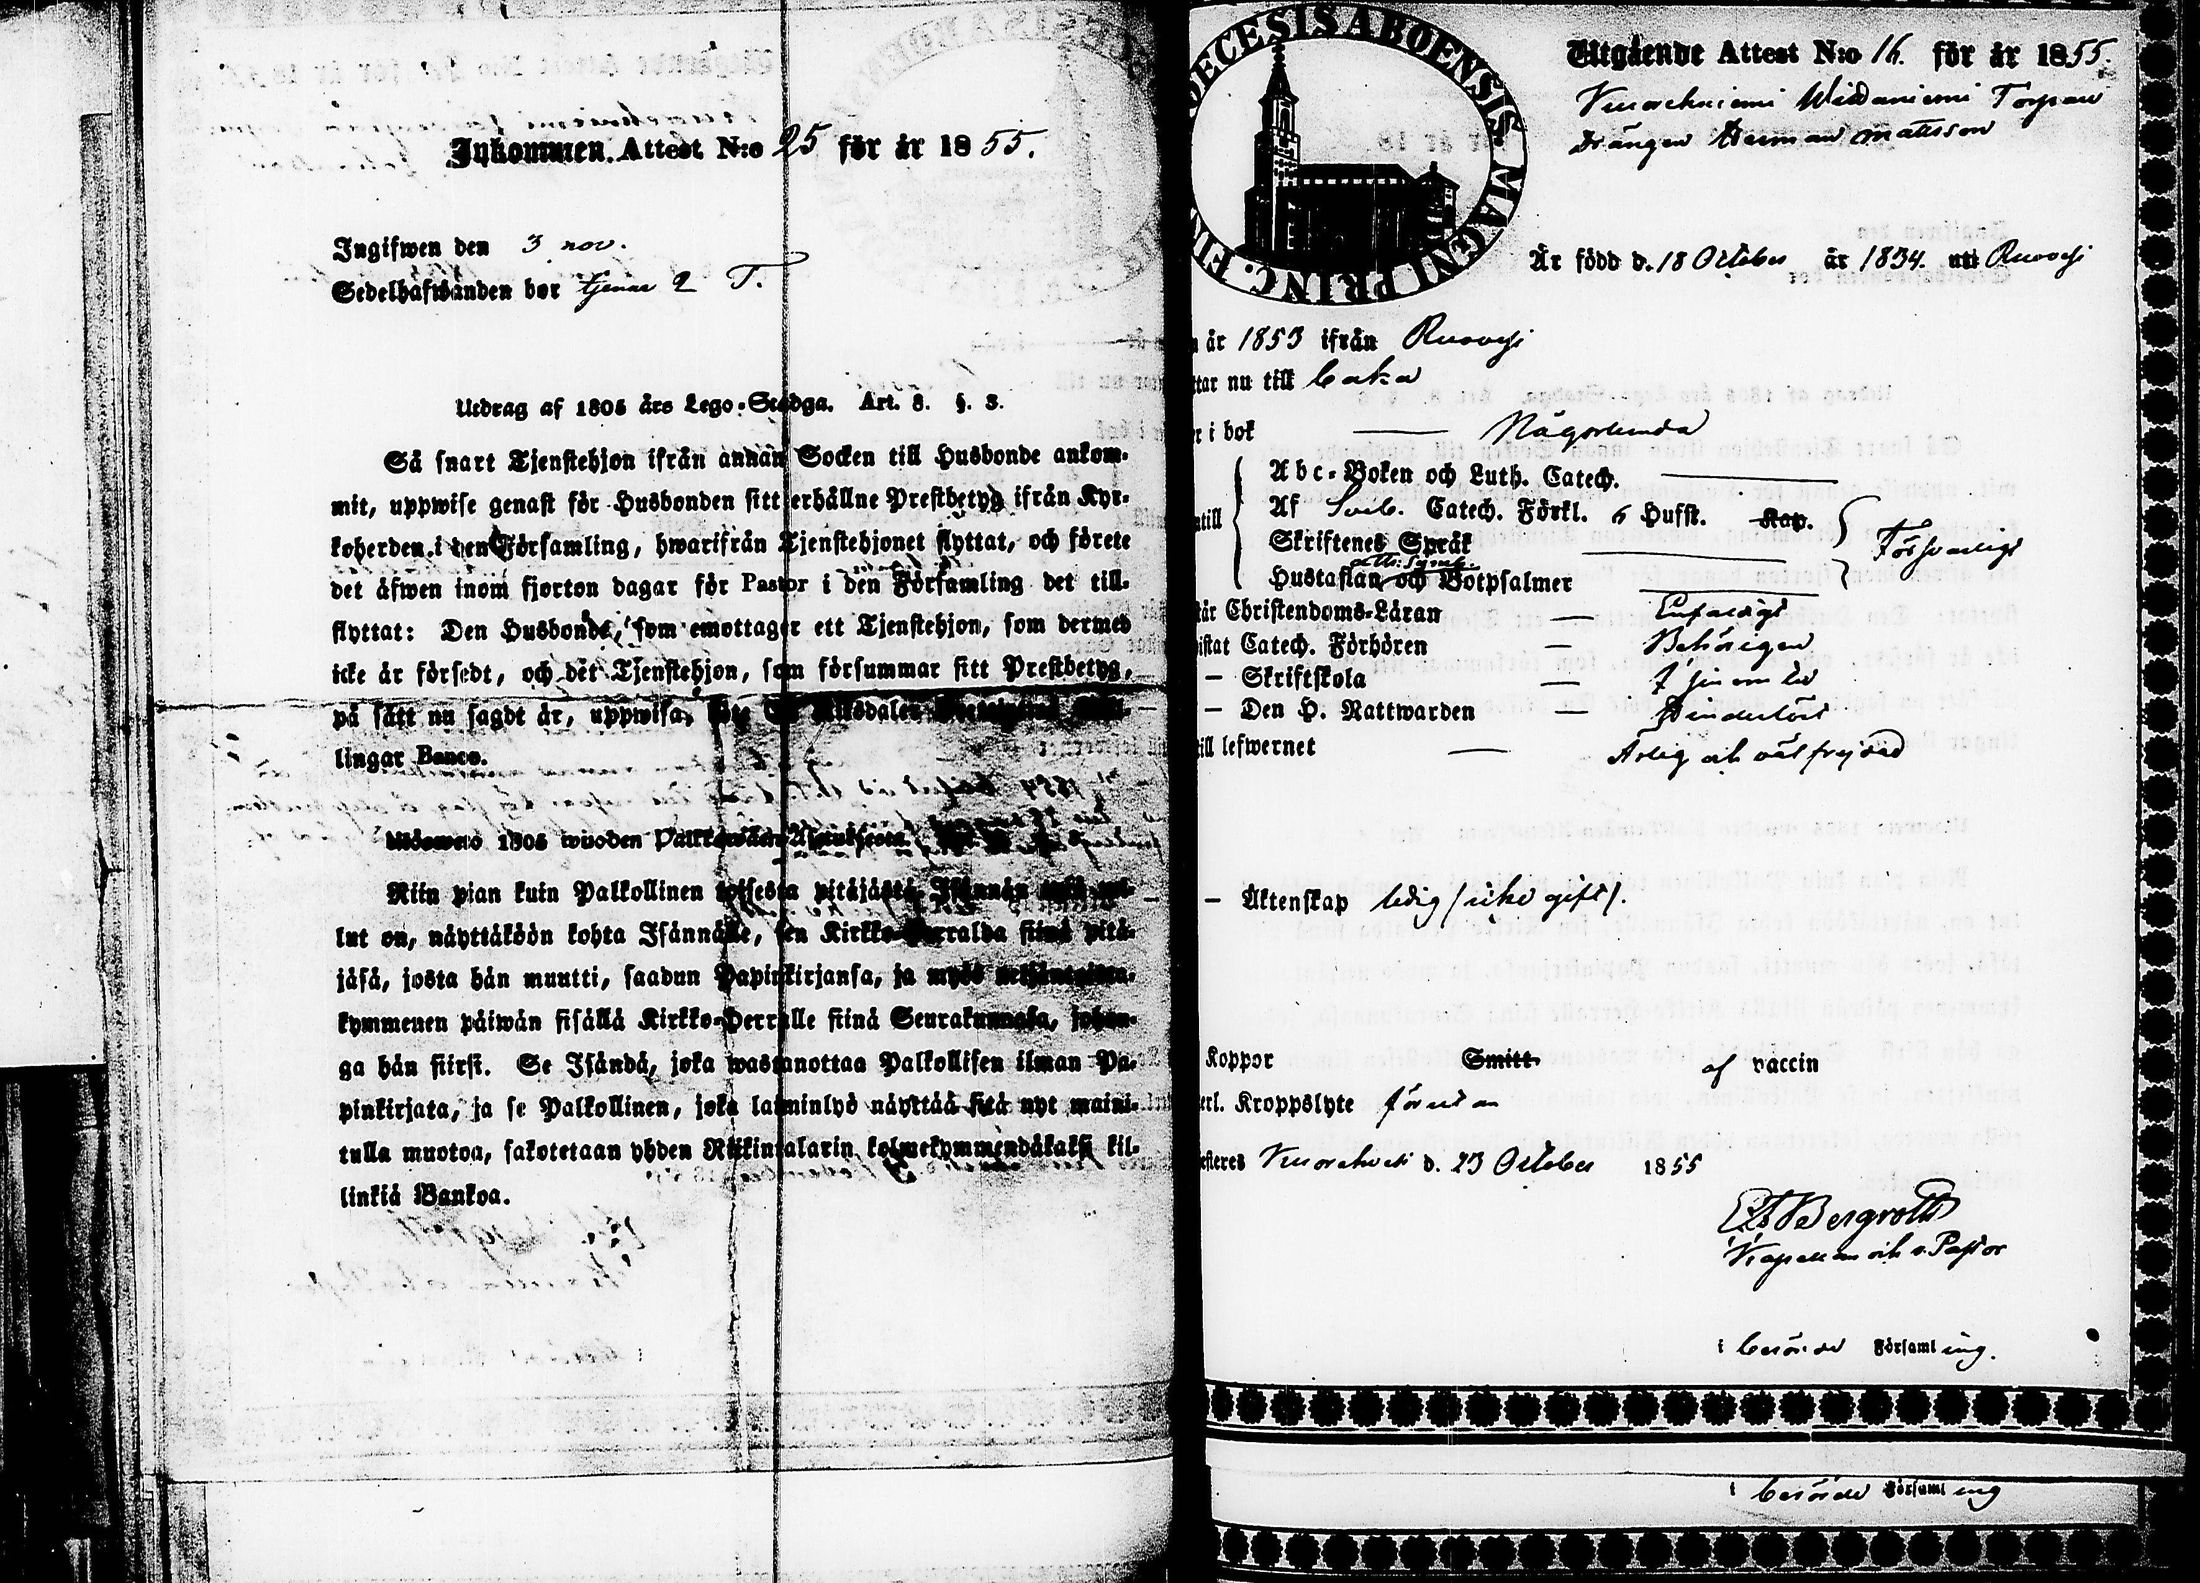 Inkommen Attest N:o 25 för år 1855.
Ingifwen den 3 nov.
Sedelhafwanden bor tjenar 2 T.
Utdrag af 1805 års Lego-Stadga. Art. 8. §. 3.
Så snart Tjenstehjon ifrån annan Socken till Husbonde ankom-
mit, uppwise genast för Husbonden sitt erhållne Prestbetyg ifrån Kyr-
koherden i den Församling, hwarifrån Tjenstehjonet flyttat, och förete
det äfwen inom fjorton dagar för Pastor i den Församling det till-
flyttat: Den Husbonde, som emottager ett Tjenstehjon, som dermed
icke är försedt, och det Tjenstehjon, som försummar sitt Prestbetyg,
på sätt nu sagdt är, uppwisa, Riksdaler
lingar Banco.
1805 wuoden Palkkawäen Asetuksesta.
Niin pian kuin Palkollinen toisesta pitäjästä Isännän
lut on, näyttäköön kohta Isännälle, sen Kirkko-Herralda siinä pitä-
jäsä, josta hän muutti, saadun Papinkirjansa, ja myös
kymmenen päiwän sisällä Kirkko-Herralle siinä Seurakunnasa, johon-
ga hän siirsi. Se Isändä, joka wastanottaa Palkollisen ilman Pa-
pinkirjata, ja se Palkollinen, joka laiminlyö näyttää sitä nyt maini-
tulla muotoa, sakotetaan yhden Riikintalarin kolmekymmendäkaksi kil-
linkiä Bankoa.
DECESIS ABOENSIS. MAGNI PRINC. FIN
Utgående Attest N:o 16. för år 1855.
Kuorehniemi Torpan
Drängen Herman Mattsson
Är född d. 18 October år 1834. uti Ruovesi
år 1853 ifrån Ruovesi
tar nu till
i bok — Någorlunda
Abc-Boken och Luth. Catech.
Af Sveb. Catech. Förkl. 6 Hufst. Kap.
Skriftenes Språk
Ath: Symb.
Hustaflan och Botpsalmer
Försvarligt
Christendoms-Läran — Enfaldigt
istat Catech. Förhören — Behörigen
— Skriftskola —
— Den H. Nattwarden — Hinderlöst
ill lefwernet — Ärlig och väl frejdad
— Äktenskap ledig (icke gift).
Koppor Smitt af vaccin
erl. Kroppslyte förutan
esteres Kuorehvesi d. 23 October 1855
Bergroth
Kapellan och v. Pastor
i berörde Församling.
i berörde Församling